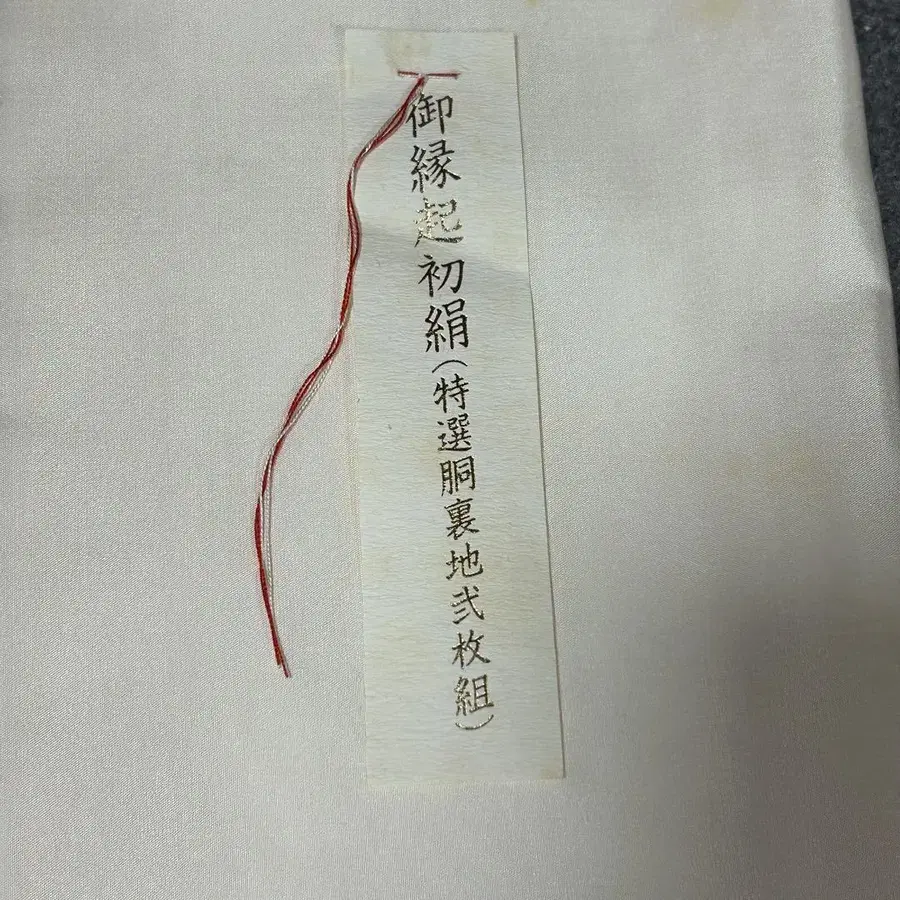 御縁起初絹(特選胴裏地弐枚組)